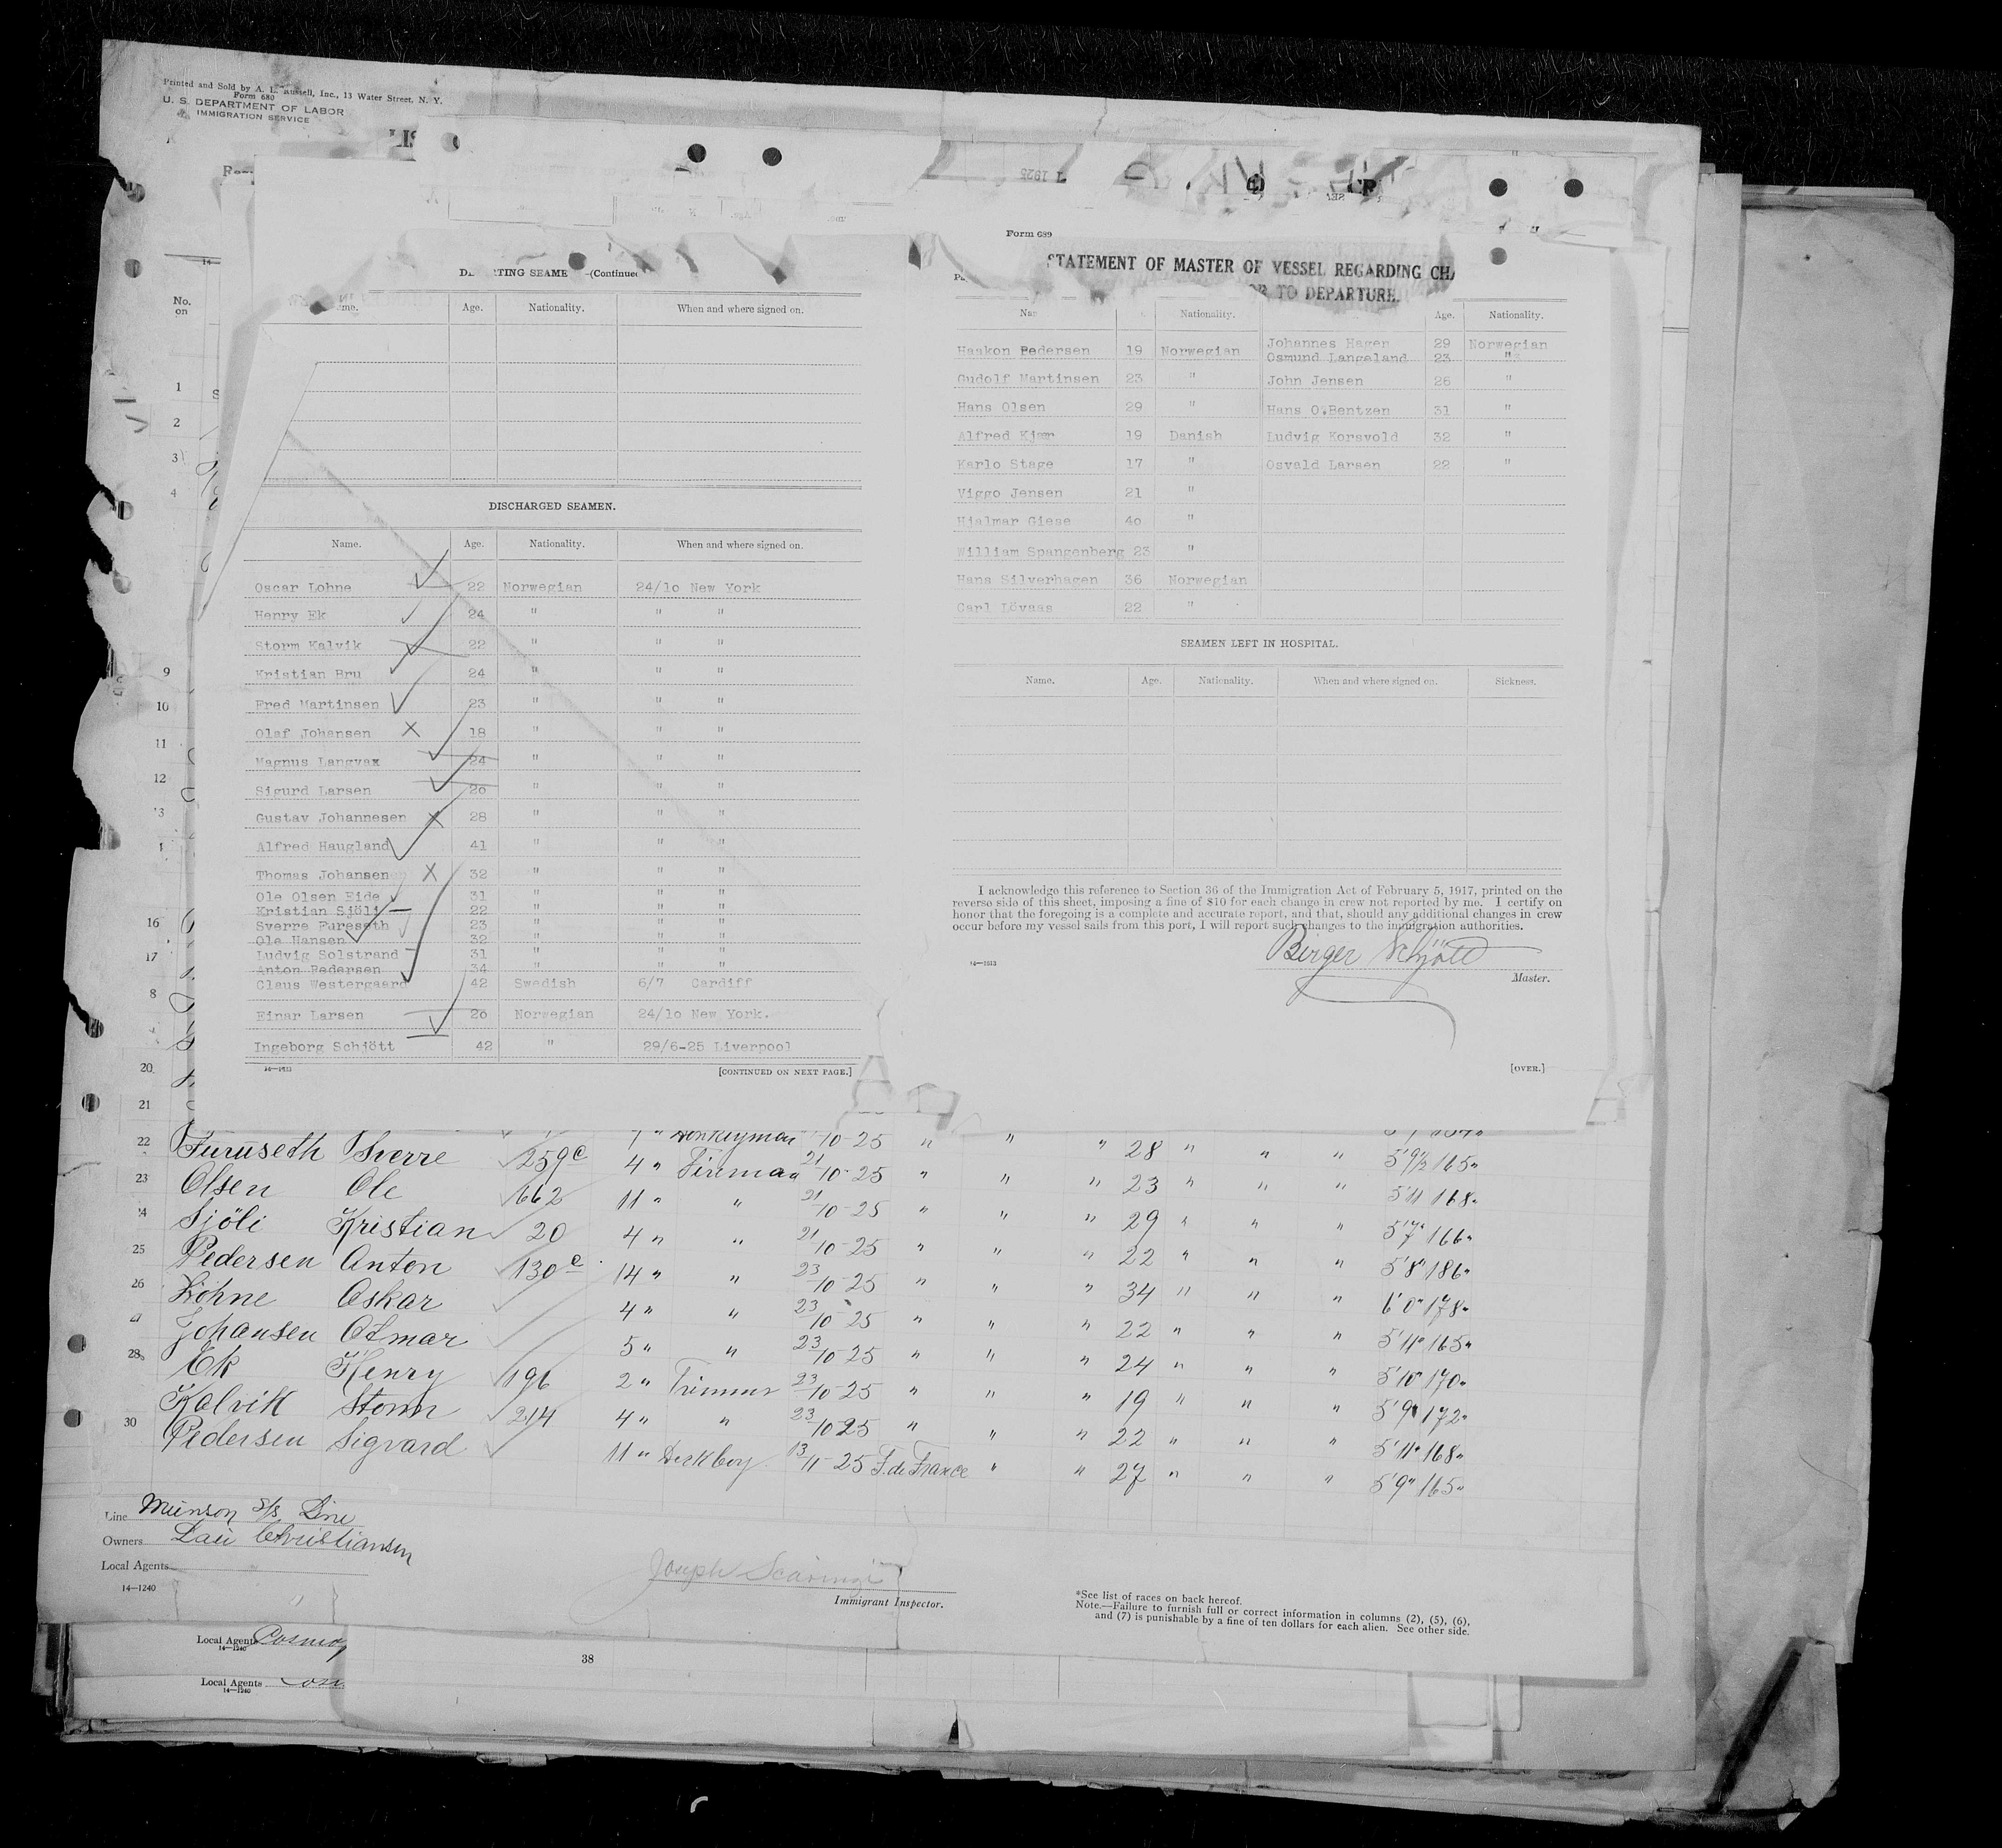 Printed and Sold by A. L. Russell, Inc., 13 Water Street, N. Y.
Form 680
U. S. DEPARTMENT OF LABOR
IMMIGRATION SERVICE
No. on
1
2
3
4
9
10
11
12
16
17
8
20
21
1925
DEPARTING SEAMEN—(Continued
Name. Age. Nationality. When and where signed on.
DISCHARGED SEAMEN.
Name. Age. Nationality. When and where signed on.
Oscar Lohne 22 Norwegian 24/10 New York
Henry Ek 24 " " "
Storm Kalvik 22 " " "
Kristian Bru 24 " " "
Fred Martinsen 23 " " "
Olaf Johansen 18 " " "
Magnus Langvax 24 " " "
Sigurd Larsen 20 " " "
Gustav Johannesen 28 " " "
Alfred Haugland 41 " " "
Thomas Johansen 32 " " "
Ole Olsen Eide 31 " " "
Kristian Sjöli 22 " " "
Sverre Fureseth 23 " " "
Ole Hansen 32 " " "
Ludvig Solstrand 31 " " "
Anton Pedersen 34 " " "
Claus Westergaard 42 Swedish 6/7 Cardiff
Einar Larsen 26 Norwegian 24/10 New York.
Ingeborg Schjött 42 " 29/6-25 Liverpool
14—1513
[CONTINUED ON NEXT PAGE.]
Form 689
STATEMENT OF MASTER OF VESSEL REGARDING CHA
OR TO DEPARTURE.
Nationality. Age. Nationality.
Haakon Pedersen 19 Norwegian Johannes Hagen 29 Norwegian
Osmund Langeland 23 "
Gudolf Martinsen 23 " John Jensen 26 "
Hans Olsen 29 " Hans O.Bentzen 31 "
Alfred Kjær 19 Danish Ludvig Korsvold 32 "
Karlo Stage 17 " Osvald Larsen 22 "
Viggo Jensen 21 "
Hjalmar Giese 40 "
William Spangenberg 23 "
Hans Silverhagen 36 Norwegian
Carl Lövaas 22 "
SEAMEN LEFT IN HOSPITAL.
Name. Age. Nationality. When and where signed on. Sickness.
I acknowledge this reference to Section 36 of the Immigration Act of February 5, 1917, printed on the
reverse side of this sheet, imposing a fine of $10 for each change in crew not reported by me. I certify on
honor that the foregoing is a complete and accurate report, and that, should any additional changes in crew
occur before my vessel sails from this port, I will report such changes to the immigration authorities.
Birger Schjött
14—1513
Master.
[OVER.]
22 Furuseth Sverre 259c 4 " Fireman 21/10-25 " " " 23 " " " 5'9½ 165"
23 Olsen Ole 662 11 " " 21/10-25 " " " 29 " " " 5'11 168"
24 Sjöli Kristian 20 4 " " 21/10-25 " " " 22 " " " 5'7" 166"
25 Pedersen Anton 130c 14 " " 23/10-25 " " " 34 " " " 5'8" 186"
26 Löhne Oskar 4 " " 23/10-25 " " " 22 " " " 6'0" 178"
27 Johansen Otmar 5 " " 23/10-25 " " " 24 " " " 5'11" 165"
28 Ek Henry 196 2 " Trimmer 23/10-25 " " " 19 " " " 5'10" 170"
Kalvik Storm 214 4 " " 23/10-25 " " " 22 " " " 5'9" 172"
30 Pedersen Sigvard 11 " Deckboy 13/11-25 F. de France " " 27 " " " 5'11" 168"
5'9" 165"
Line Munson S/S Line
Owners Lau Christiansen
Local Agents
14—1240
Joseph Scaringi
Immigrant Inspector.
*See list of races on back hereof.
Note.—Failure to furnish full or correct information in columns (2), (5), (6),
and (7) is punishable by a fine of ten dollars for each alien. See other side.
Local Agents
14—1240
38
Local Agents
14—1240